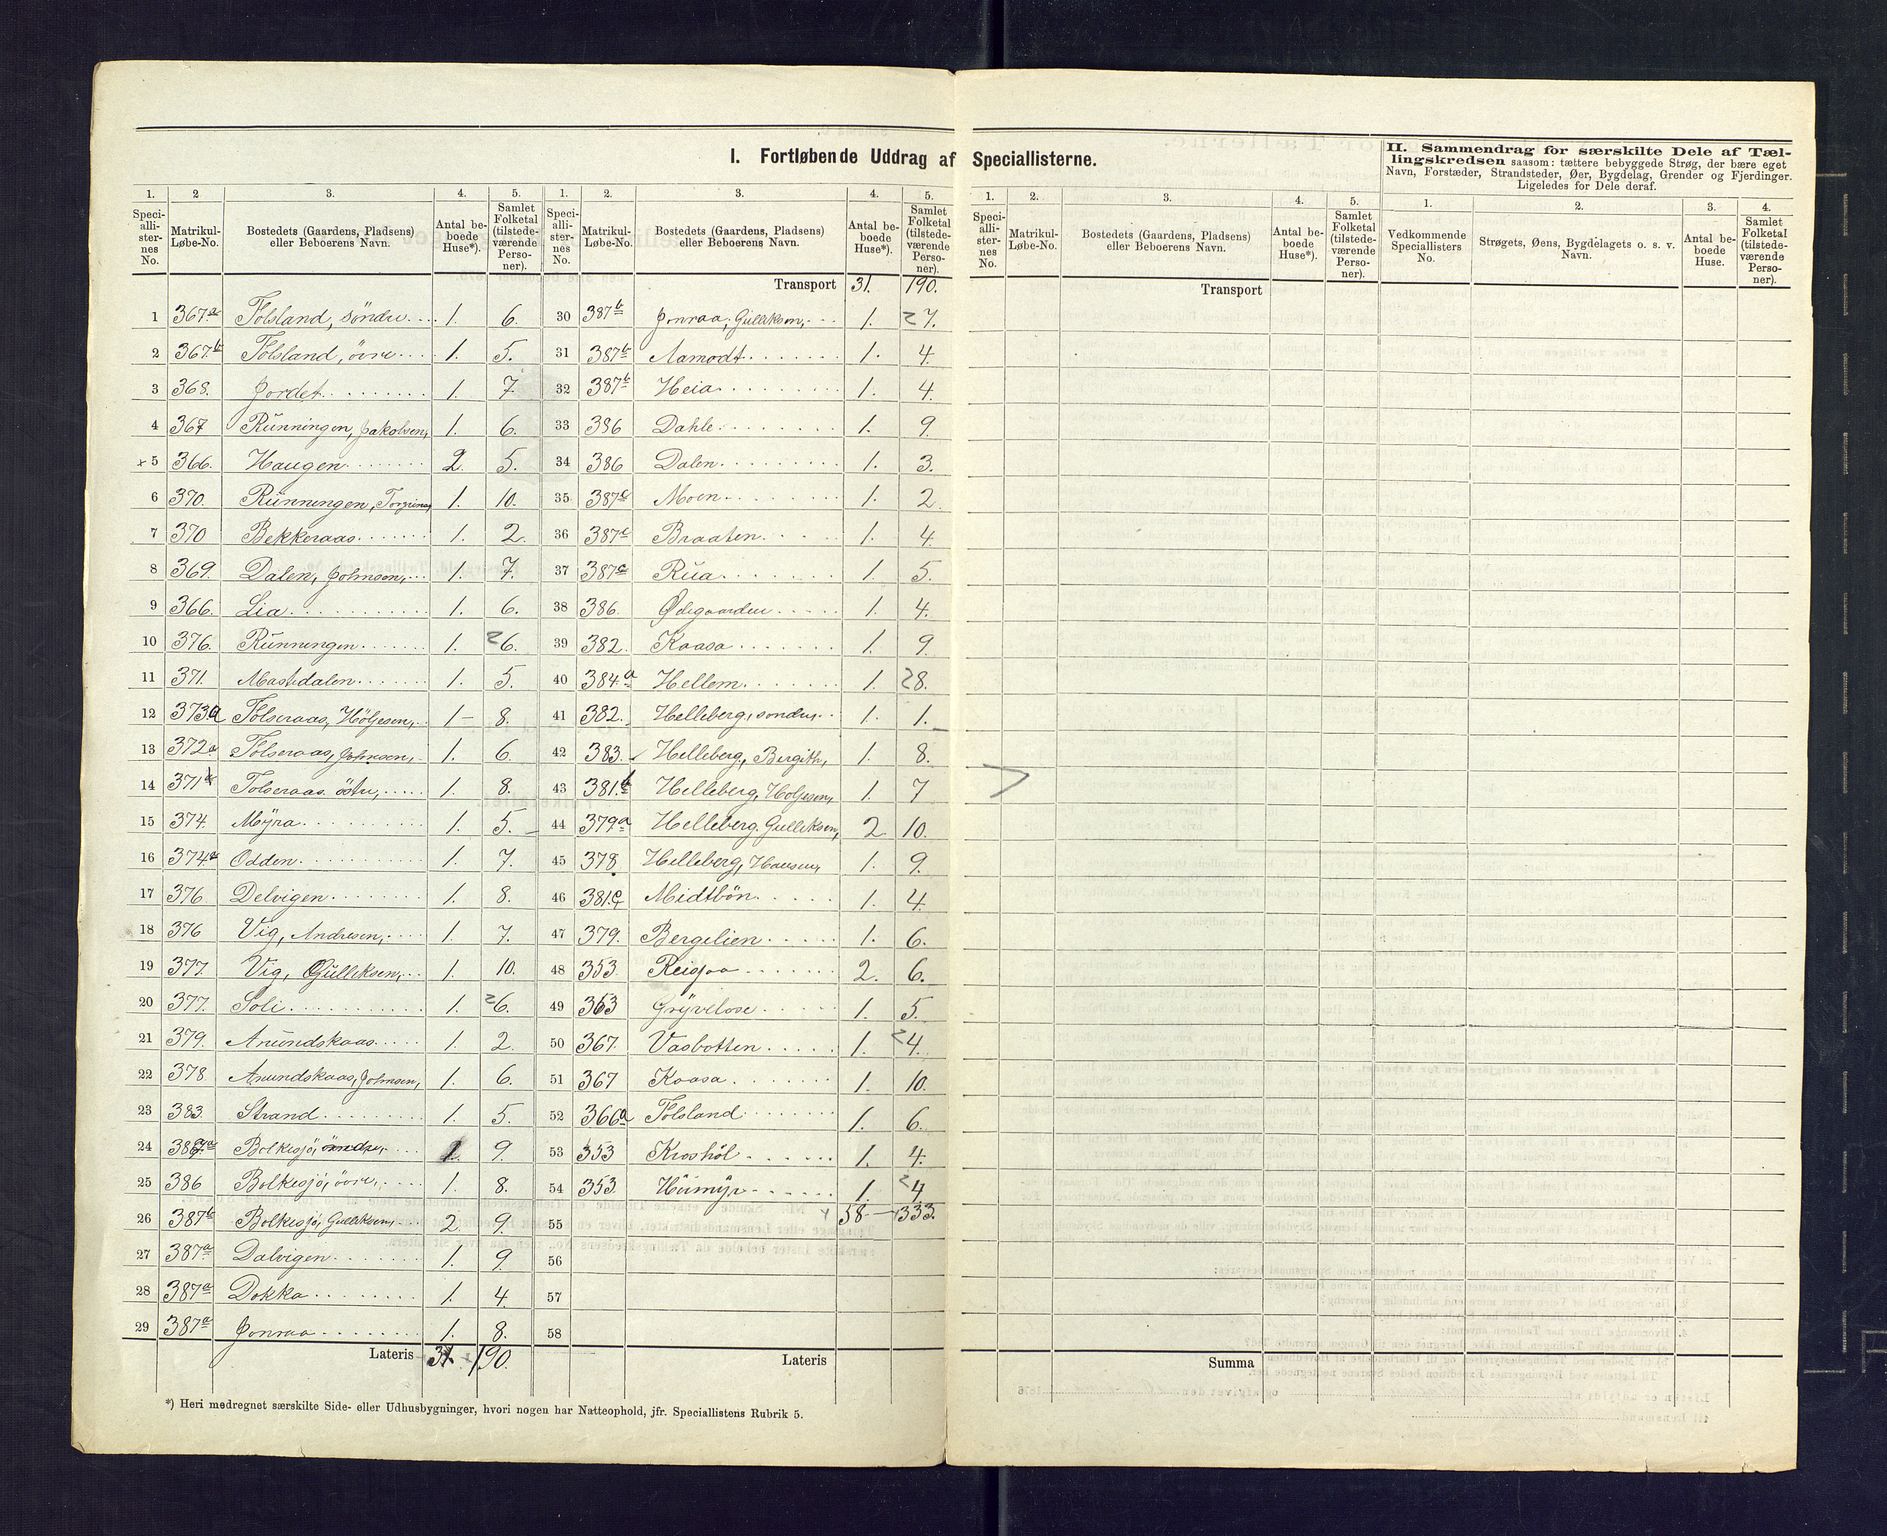 I. Fortløbende Uddrag af Speciallisterne.
II. Sammendrag for særskilte Dele af Tæl-
lingskredsen saasom: tættere bebyggede Strøg, der bære eget
Navn, Forstæder, Strandsteder, Øer, Bygdelag, Grender og Fjerdinger.
Ligeledes for Dele deraf.
1. 2 3. 4. 5. 1. 2. 3. 4. 5. 1. 2. 3. 4. 5. 1. 2. 3. 4.
Speciallisternes No. Matrikul-Løbe-No. Bostedets (Gaardens, Pladsens) eller Beboerens Navn. Antal beboede Huse*). Samlet Folketal (tilstedeværende Personer).
Speciallisternes No. Matrikul-Løbe-No. Bostedets (Gaardens, Pladsens) eller Beboerens Navn. Antal beboede Huse*). Samlet Folketal (tilstedeværende Personer).
Speciallisternes No. Matrikul-Løbe-No. Bostedets (Gaardens, Pladsens) eller Beboerens Navn. Antal beboede Huse*). Samlet Folketal (tilstedeværende Personer).
Vedkommende Speciallisters No. Strøgets, Øens, Bygdelagets o. s. v. Navn. Antal beboede Huse. Samlet Folketal (tilstedeværende Personer).
1 367.a Folsland, söndre 1. 6.
2 367.b Folsland, övre 1. 5.
3 368. Jordet 1. 7.
4 367 Rünningen, Jakobsen, 1. 6.
x 5 366. Haugen 2. 5.
6 370. Rünningen, 1. 10.
7 370 Bekkeraas 1. 2.
8 369. Dalen, Johnsen, 1. 7.
9 366. Lia 1. 6.
10 376. Rünningen 1. 2 6.
11 371. Mastedalen 1. 5.
12 373.a Folseraas, Höljesen, 1 – 8.
13 372a Folseraas, Johnsen, 1. 6.
14 371 Folseraas östre, 1. 8.
15 374. Myra 1. 5.
16 374.a Odden 1. 7.
17 376 Delvigen 1. 8.
18 376 Vig, Andresen, 1. 7.
19 377. Vig, Gulliksen, 1. 10.
20 377. Soli 1. 2 6.
21 379. Anundskaas 1. 2.
22 378. Anundskaas, Johnsen, 1. 6.
23 383. Strand 1. 5.
24 Bolkesjö, 1. 9.
25 386 Bolkesjö, övre, 1. 8.
26 387b Bolkesjö, Gulliksen, 2. 9.
27 387a Dalvigen 1. 9
28 387a Dokka 1. 4.
29 387a Jonraa 1. 8.
Lateris 31. 190.
Transport 31. 190.
30 387b Jonraa, Gulliksen, 1. 2 7.
31 387b Aamodt 1. 4.
32 387b Heia 1. 4.
33 386 Dahle 1. 9.
34 386 Dalen 1. 3.
35 387c Moen 1. 2
36 387c Braaten 1. 4.
37 387c Rua 1. 5.
38 386. Ødegaarden 1. 4.
39 382. Kaasa 1. 9
40 384.a Hellem 1. 2 8.
41 382. Helleberg, söndre 1. 1.
42 383. Helleberg, Bergith, 1. 8.
43 381.b Helleberg, Holjesen, 1. 7
44 379a Helleberg. Gulliksen, 2. 10.
45 378. Helleberg, Hansen, 1. 9.
46 381.c Midtbön 1. 4.
47 379. Bergelien 1. 6.
48 353. Reisjaa 2. 6.
49 353 Grÿvelose 1. 5.
50 367. Vasbotten 1. 2 4.
51 367 Kaasa 1. 10.
52 366a Folsland 1. 6.
53 353 Kroshöl 1. 4.
54 353. Husmyr 1. 2 4
55 58 – 1333.
56
57
58
Lateris
Transport
Summa
*) Heri medregnet særskilte Side- eller Udhusbygninger, hvori nogen har Natteophold, jfr. Speciallistens Rubrik 5.